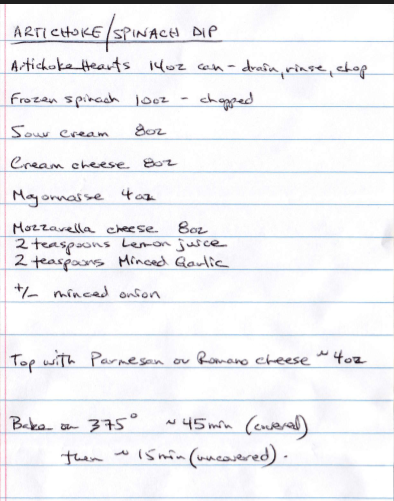 ARTICHOKE/SPINACH DIP
Artichoke Hearts 14oz can - drain, rinse, chop
Frozen spinach 10oz - chopped
Sour Cream 8oz
Cream cheese 8oz
Mayonnaise 4oz
Mozzarella cheese 8oz
2 teaspoons Lemon juice
2 teaspoons Minced Garlic
+/- minced onion
Top with Parmesan or Romano cheese ~ 4oz
Bake on 375° ~ 45min (covered)
then ~ 15min (uncovered).